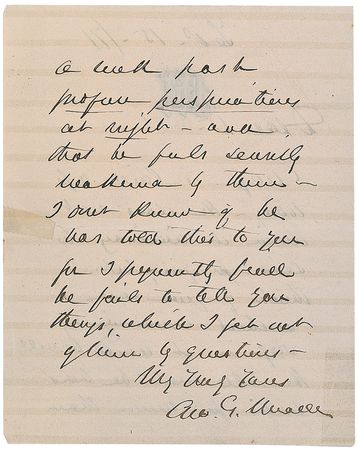 a week past
profuse perspirations
at night - and
that he feels
weakened by them -
I dont know if he
has told this to you
for I frequently find
he fails to tell you
things, which I get out
of him by questions -
Very Truly Yours
Geo. G.